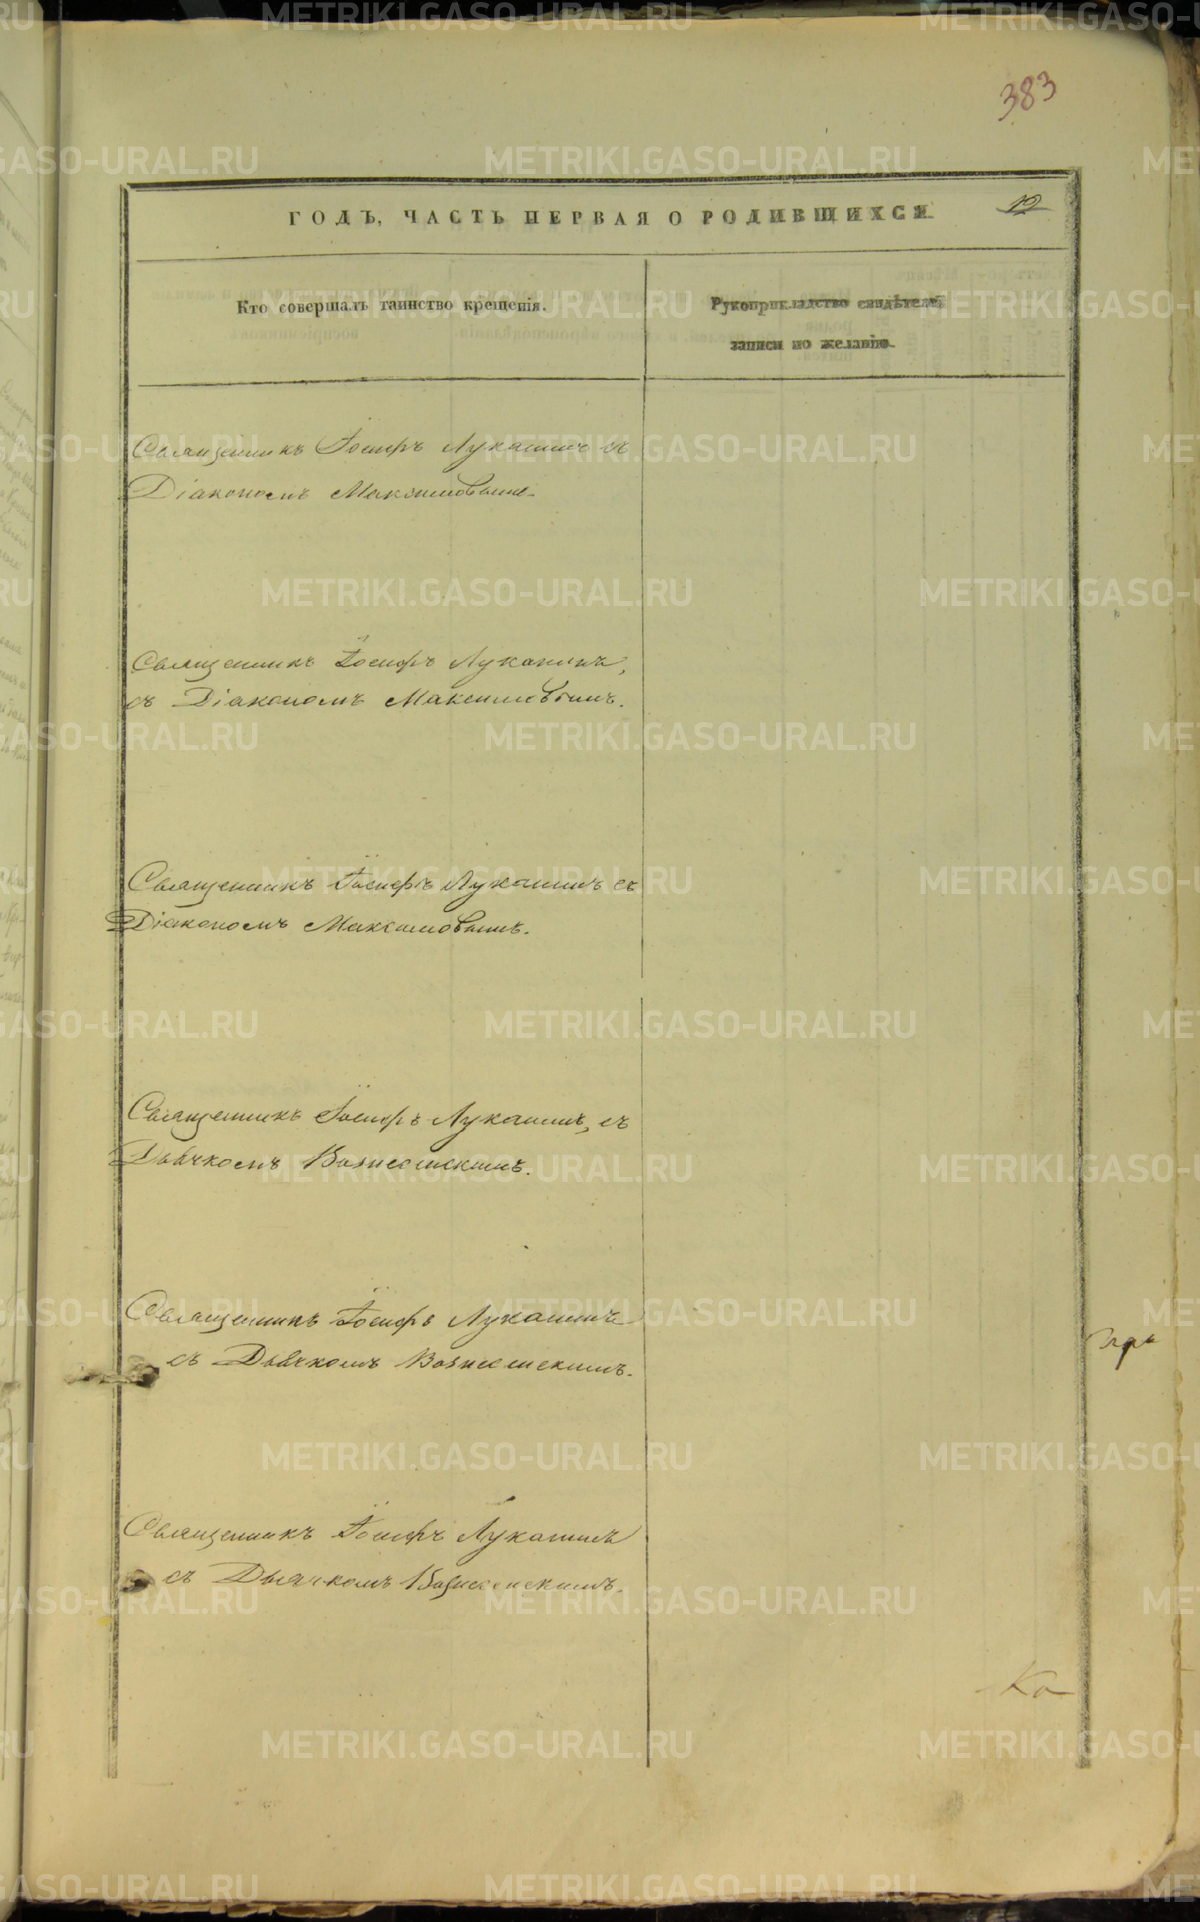 383
ГОДЪ, ЧАСТЬ ПЕРВАЯ О РОДИВШИХСЯ
12
Кто совершалъ таинство крещенія.
Рукоприкладство свидѣтелей
записи по желанію.
Священникъ Іосифъ Луканинъ съ
Діакономъ Максимовымъ.
Священникъ Іосифъ Луканинъ,
съ Діакономъ Максимовымъ.
Священникъ Іосифъ Луканинъ съ
Діакономъ Максимовымъ.
Священникъ Іосифъ Луканинъ, съ
Дьячкомъ Вознесенскимъ.
Священникъ Іосифъ Луканинъ
съ Дьячкомъ Вознесенскимъ.
Священникъ Іосифъ Луканинъ
съ Дьячкомъ Вознесенскимъ.
Ка
METRIKI.GASO-URAL.RU